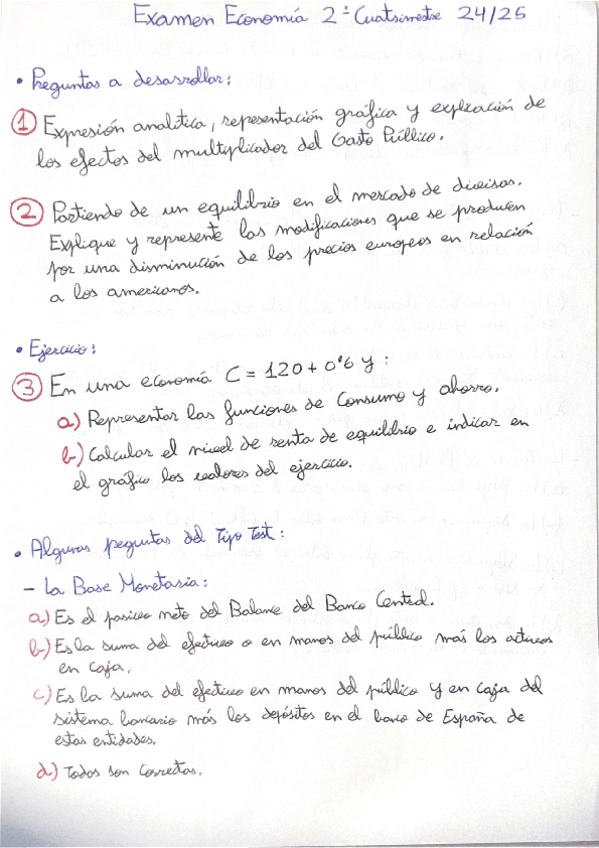 Examen Economía 2º Cuatrimestre 24/25
• Preguntas a desarrollar:
① Expresión analítica, representación gráfica y explicación de
los efectos del multiplicador del Gasto Público.
② Partiendo de un equilibrio en el mercado de divisas.
Explique y represente las modificaciones que se producen
por una disminución de los precios europeos en relación
a los americanos.
• Ejercicio:
③ En una economía C = 120 + 0'6 Y :
a) Representar las funciones de Consumo y ahorro.
b) Calcular el nivel de renta de equilibrio e indicar en
el gráfico los valores del ejercicio.
• Algunas peguntas del Tipo Test:
- La Base Monetaria:
a) Es el pasivo neto del Balance del Banco Central.
b) Es la suma del efectivo o en manos del público más los activos
en caja.
c) Es la suma del efectivo en manos del público y en caja del
sistema bancario más los depósitos en el banco de España de
estas entidades.
d) Todas son correctas.